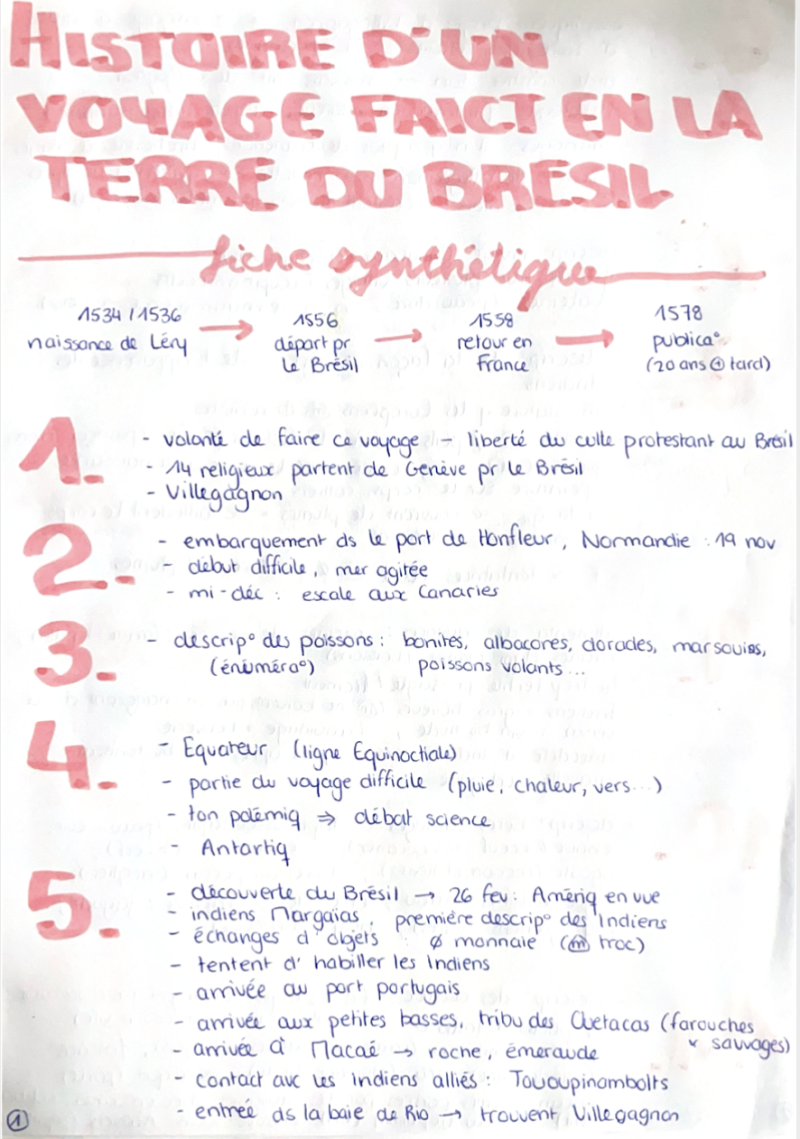 HISTOIRE D'UN
VOYAGE FAICT EN LA
TERRE DU BRESIL
fiche synthétique
1534 / 1536 → 1556 → 1558 → 1578
naissance de Léry départ pr retour en publica°
Le Brésil France (20 ans ⊕ tard)
1. - volonté de faire ce voyage - liberté du culte protestant au Brésil
- 14 religieux partent de Genève pr le Brésil
- Villegagnon
2. - embarquement ds le port de Honfleur, Normandie : 19 nov
- début difficile, mer agitée
- mi-déc : escale aux Canaries
3. - descrip° des poissons : bonites, albacores, dorades, marsouins,
(énuméra°) poissons volants...
4. - Equateur (ligne Equinoctiale)
- partie du voyage difficile (pluie, chaleur, vers...)
- ton polémiq ⇒ débat science
- Antartiq
5. - découverte du Brésil → 26 fev : Amériq en vue
- indiens Margaias, première descrip° des Indiens
- échanges d'objets : ø monnaie (m troc)
- tentent d'habiller les Indiens
- arrivée au port portugais
- arrivée aux petites basses, tribu des Ouetacas (farouches
sauvages)
- arrivée à Macaé → roche, émeraude
- contact avc les Indiens alliés : Tououpinambolts
- entrée ds la baie de Rio → trouvent Villegagnon
1